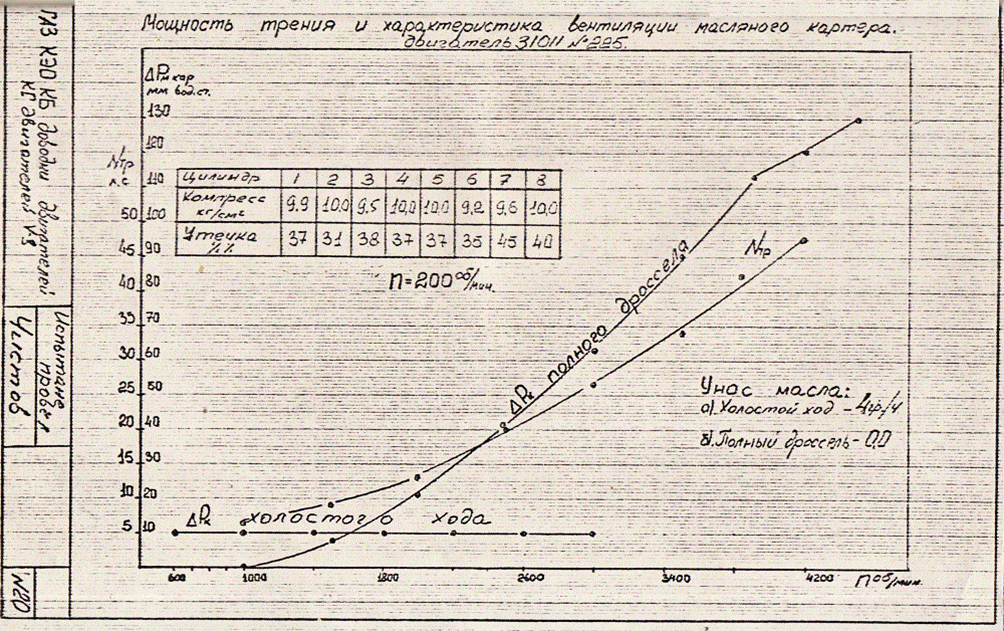 Мощность трения и характеристика вентиляции масляного картера.
двигатель 31011 №225.
ГАЗ КЭО КБ доводки двигателей
КГ двигателей V8
Испытание
провел
Чистов
N20
ΔPм кар
мм вод.ст.
130
120
110
100
90
80
70
60
50
40
30
20
10
Nтр
л.с
50
45
40
35
30
25
20
15
10
5
Цилиндр 1 2 3 4 5 6 7 8
Компресс кг/см² 9.9 10,0 9,5 10,0 10,0 9,2 9,6 10,0
Утечка %% 37 31 38 37 37 35 45 40
n=200 об/мин.
ΔPк полного дросселя
Nтр
Унос масла:
а). Холостой ход - 4 гр/ч
б). Полный дроссель - 0,0
ΔPк холостого хода
600 1000 1800 2600 3400 4200 n об/мин.